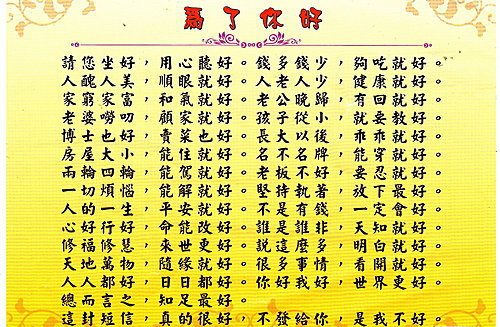 爲了你好
請您坐好，用心聽好。錢多錢少，夠吃就好。
人醜人美，順眼就好。人老人少，健康就好。
家窮家富，和氣就好。老公晚歸，有回就好。
老婆嘮叨，顧家就好。孩子從小，就要教好。
博士也好，賣菜也好。長大以後，乖乖就好。
房屋大小，能住就好。名不名牌，能穿就好。
兩輪四輪，能駕就好。老板不好，要忍就好。
一切煩惱，能解就好。堅持執著，放下最好。
人的一生，平安就好。不是有錢，一定會好。
心好行好，命能改好。誰是誰非，天知就好。
修福修慧，來世更好。說這麼多，明白就好。
天地萬物，隨緣就好。很多事情，看開就好。
人人都好，日日都好。你好我好，世界更好。
總而言之，知足最好。
這封短信，真的很好，不發給你，是我不好。